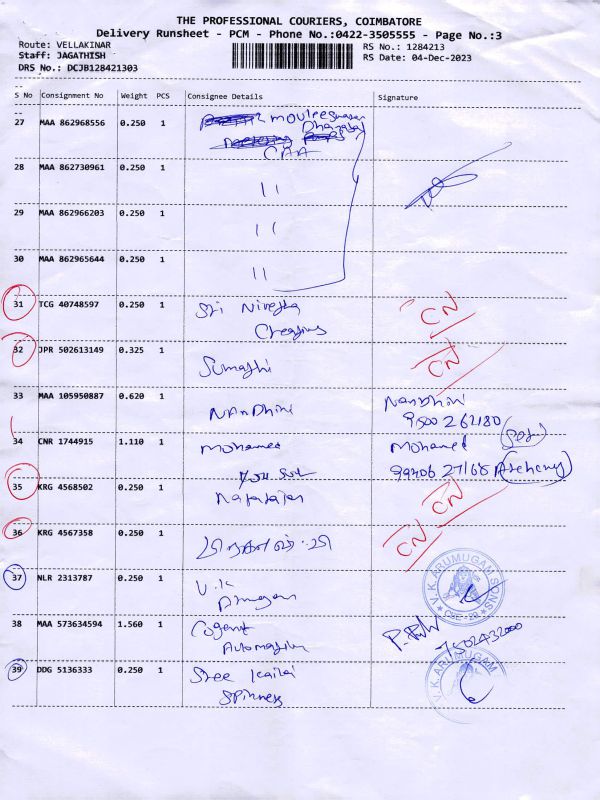 THE PROFESSIONAL COURIERS, COIMBATORE
Delivery Runsheet - PCM - Phone No.:0422-3505555 - Page No.:3
Route: VELLAKINAR
RS No.: 1284213
Staff: JAGATHISH
RS Date: 04-Dec-2023
DRS No.: DCJB128421303
S No Consignment No Weight PCS Consignee Details Signature
27 MAA 862968556 0.250 1
28 MAA 862730961 0.250 1 11
29 MAA 862966203 0.250 1 11
30 MAA 862965644 0.250 1 11
31 TCG 40748597 0.250 1 Sri CN
32 JPR 502613149 0.325 1 Sumathi CN
33 MAA 105950887 0.620 1 NAnDhini NanDhini
9500 262180
34 CNR 1744915 1.110 1 mohamed Mohamed
35 KRG 4568502 0.250 1 Natarajan CN
36 KRG 4567358 0.250 1 CN
37 NLR 2313787 0.250 1 V.K
V.K.ARUMUGAM SONS
CBE-29
38 MAA 573634594 1.560 1 Cogent
Automation
39 DDG 5136333 0.250 1 Sree Kailai
Spinners
V.K.ARUMUGAM